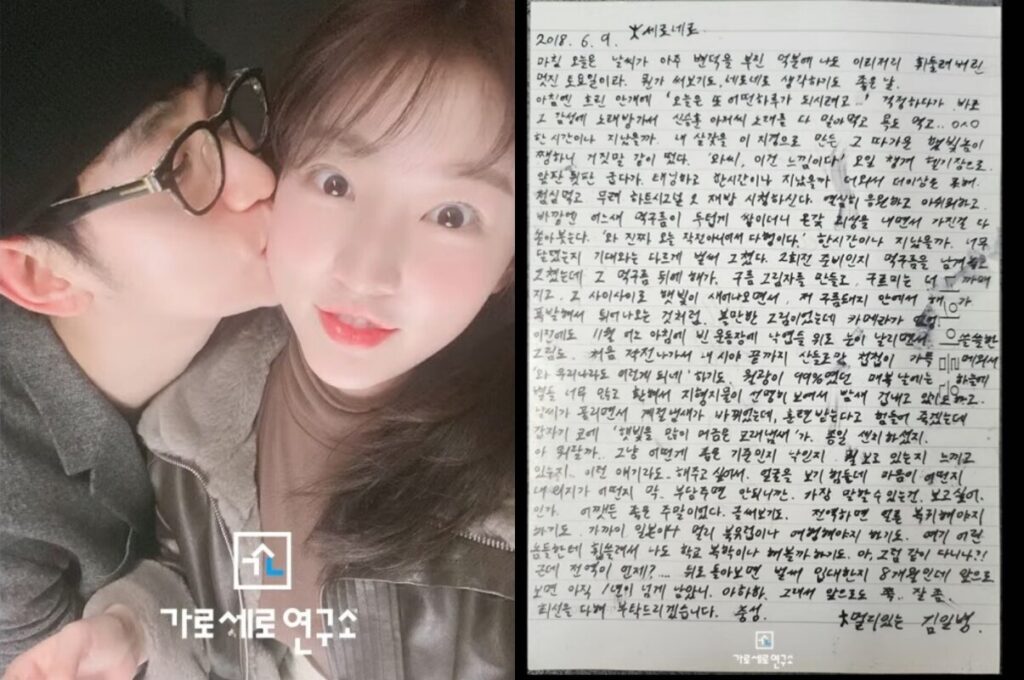 가로세로연구소
2018. 6. 9. 세로네로
마침 오늘은 날씨가 아주 변덕을 부린 덕분에 나도 이리저리 휘둘려버린
멋진 토요일이라. 뭔가 써보기도, 네로네로 생각하기도 좋은 날.
아침엔 흐린 안개에 '오늘은 또 어떤하루가 되시려고...' 걱정하다가 바로
그 감성에 노래방가서 신승훈 아저씨 노래를 다 잡아먹고 욕도 먹고.. O^O
한 시간이나 지났을까. 내 살갗을 이 지경으로 만든 그 따가운 햇빛놈이
쨍하니 거짓말 같이 떴다. '와씨, 이건 느낌이다' 오일 챙겨 텔기장으로
앞판 뒷판 굽다가. 태닝하고 한시간이나 지났을까 더워서 더이상은 포기.
점심먹고 무려 하트시그널 2 재방 시청하신다. 열심히 응원하고 아쉬워하고.
바깥엔 어느새 먹구름이 두텁게 쌓이더니 온갖 괴성을 내면서 가진걸 다
쏟아붓는다. '와 진짜 오늘 작전아니어서 다행이다.' 한시간이나 지났을까. 너무
달렸는지 기대와는 다르게 벌써 그쳤다. 2회전 준비인지 먹구름을 남겨놓고
그쳤는데 그 먹구름 뒤에 해가. 구름 그림자를 만들고, 구르미는 더 까매
지고. 그 사이사이로 햇빛이 새어나오면서, 저 구름돼지 안에서 해 가
폭발해서 튀어나오는 것처럼. 볼만한 그림이었는데 카메라가
이런에도 11월 어느 아침에 빈 운동장에 낙엽들 위로 눈이 날리면서 쓸쓸한
그림도. 처음 작전나가서 내 시야 끝까지 산들로만 첩첩이 가득 메워서
'와 우리나라도 이런게 되네' 하기도. 월광이 99%였던 매복날에는 하늘에
별들 너무 많고 환해서 지형지물이 선명히 보여서 밤새 겁내고 있기도하고..
날씨가 풀리면서 계절냄새가 바뀌었는데, 훈련받는다고 힘들어 죽겠는데
갑자기 코에 '햇빛을 많이 머금은 모래냄새'가. 종일 센치하셨지.
아 뭐랄까.. 그냥 어떤게 좋은 기준인지 낙인지 뭘 보고 있는지 느끼고
있는지. 이런 얘기라도.. 해주고 싶어서. 얼굴을 보기 힘든데 마음이 어떤지
내 의지가 어떤지 막. 부담주면 안되니깐. 가장 말할수 있는건. 보고싶어.
인가. 어쨌든 좋은 주말이었다. 글써보기도. 전역하면 얼른 복귀해야지
하기도. 가까이 일본이나 멀리 북유럽이나 여행해야지 하기도. 여기 어린
놈들한테 휩쓸려서 나도 학교 복학이나 해볼까 하기도. 아, 그럼 같이 다니나?!
근데 전역이 언제?.... 뒤로 돌아보면 벌써 입대한지 8개월인데 앞으로
보면 아직 1년이 넘게 남았니. 아하하. 그래서 앞으로도 쭉. 잘 좀.
최선을 다해 부탁드리겠습니다. 충성 멀리있는 김일병.
가로세로연구소